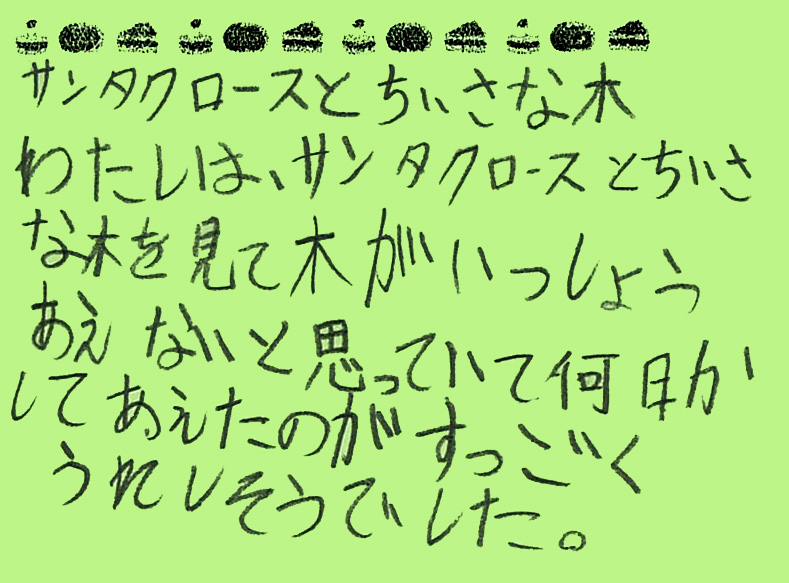 サンタクロースとちいさな木
わたしは、サンタクロースとちいさ
な木を見て木がいっしょう
あえないと思っていて何日か
してあえたのがすっごく
うれしそうでした。